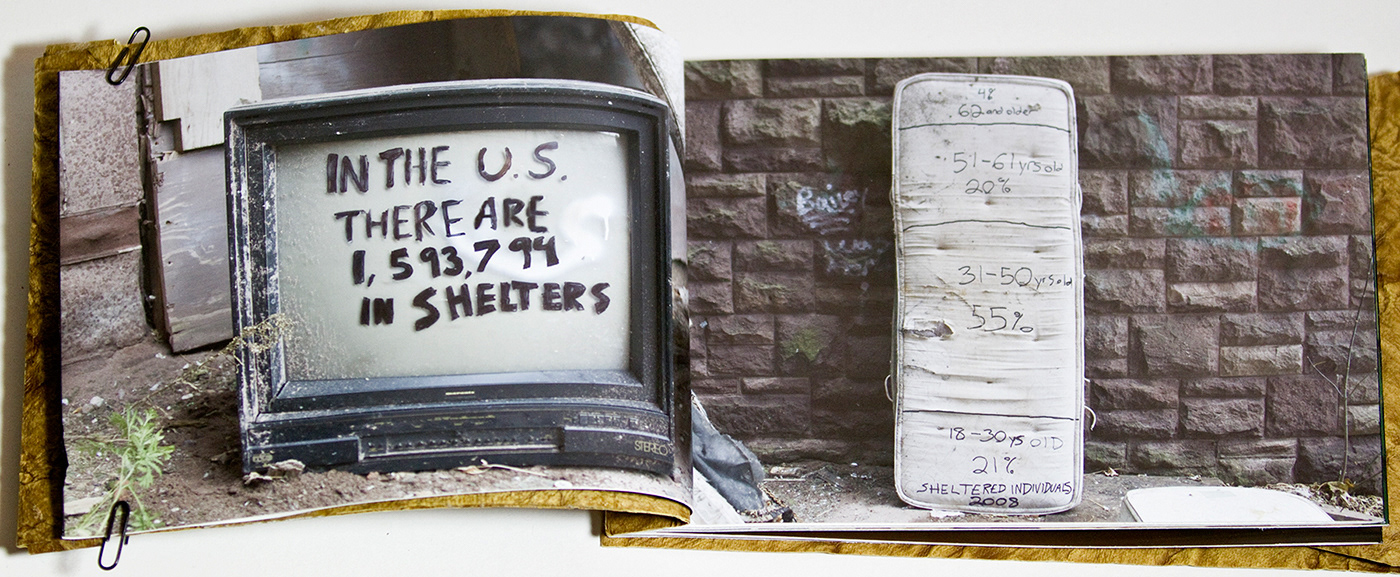 IN THE U.S.
THERE ARE
1,593,794
IN SHELTERS
STEREO
4%
62 and older
51-61 yrs old
20%
31-50 yrs old
55%
18-30 yrs OLD
21%
SHELTERED INDIVIDUALS
2008